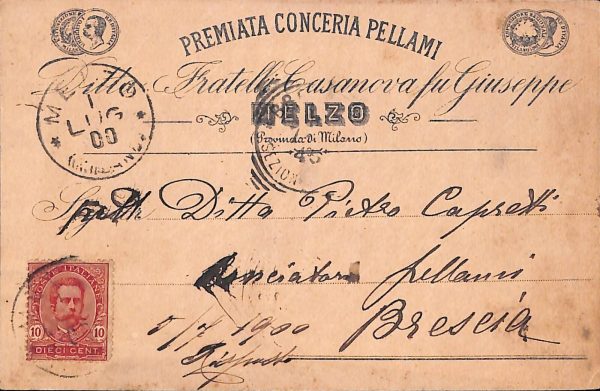 PREMIATA CONCERIA PELLAMI
Ditta Fratelli Casanova fu Giuseppe
MELZO
(Provincia di Milano)
LUG
00
45
Spett. Ditta Pietro Capretti
Conciatore pellami
Brescia
5/7 1900
Risposto
POSTE ITALIANE
10 10
DIECI CENT.